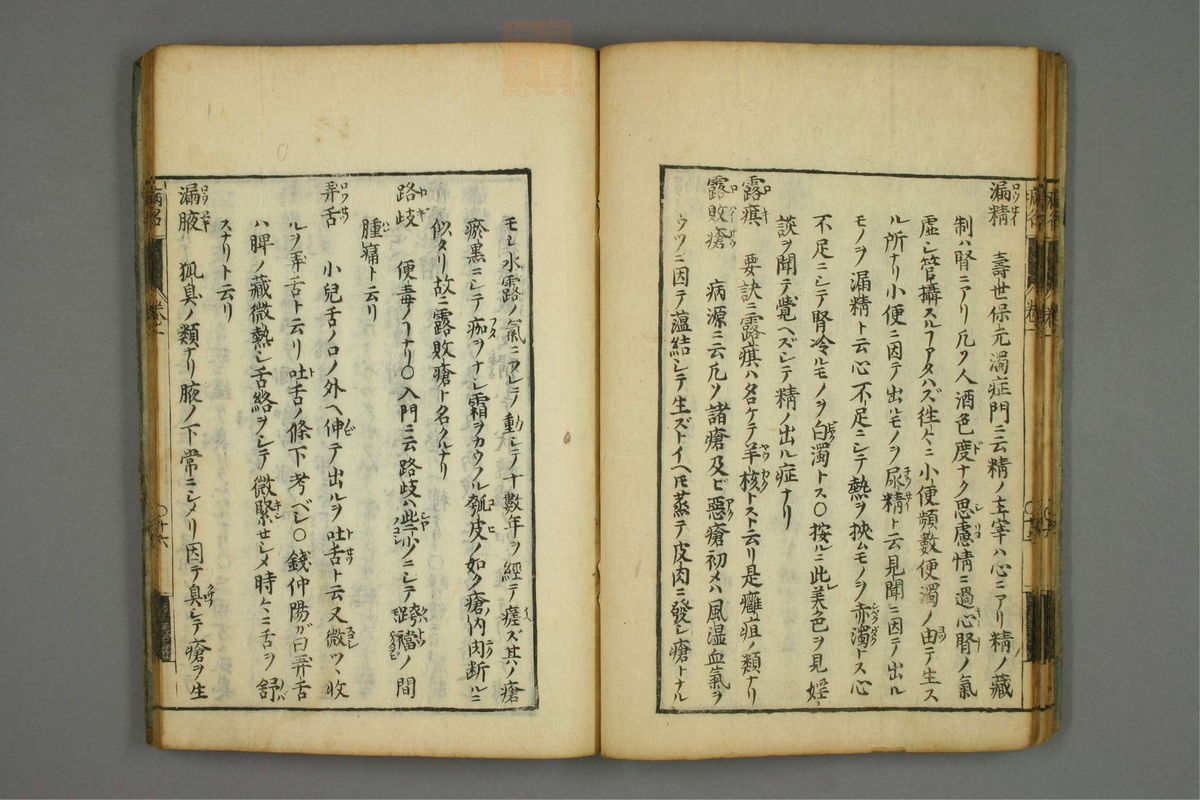 漏精 壽世保元濁症門ニ云精ノ主宰ハ心ニアリ精ノ藏
制ハ腎ニアリ凡ソ人酒色度ナク思慮情ニ過心腎ノ氣
虚シ管攝スルフアタハズ徃々ニ小便頻數便濁ノ由テ生ス
ル所ナリ小便ニ因テ出ルモノヲ尿精ト云見聞ニ因テ出ル
モノヲ漏精ト云心不足ニシテ熱ヲ挾ムモノヲ赤濁トス心
不足ニシテ腎冷ルモノヲ白濁トス〇按ルニ此レ美色ヲ見婬
談ヲ聞テ覚ヘズシテ精ノ出ル症ナリ
露瘨 要訣ニ露瘨ハタ名ケテ羊核トスト云リ是癰疽ノ類ナリ
露敗瘡 病源ニ云凡ソ諸瘡及ビ惡瘡初メハ風湿血氣ヲ
ウツニ因テ蕴結シテ生ズトイヘ𪜈蒸テ皮肉ニ發シ瘡トナル
モシ水露ノ氣ニフレテ動シテ十數年ヲ經テ瘥ズ其ノ瘡
瘀黒ニシテ痂ヲナシ霜ヲカウムル瓠皮ノ如ク瘡内肉断ルニ
似タリ故ニ露敗瘡ト名クルナリ
路歧 便毒ノヿナリ〇入門ニ云路歧ハ此レ小ノニシテ跨襠ノ間
腫痛ト云リ
弄舌 小兒舌ノ口ノ外ヘ伸テ出ルヲ吐舌ト云又微ツヽ收
ルヲ弄舌ト云リ吐舌ノ條下考ベシ〇錢仲陽ガ曰弄舌
ハ脾ノ藏微熱シ舌絡ヲシテ微緊セシメ時々ニ舌ヲ舒
スナリト云リ
漏腋 狐臭ノ類ナリ腋ノ下常ニシメリ因テ臭シテ瘡ヲ生